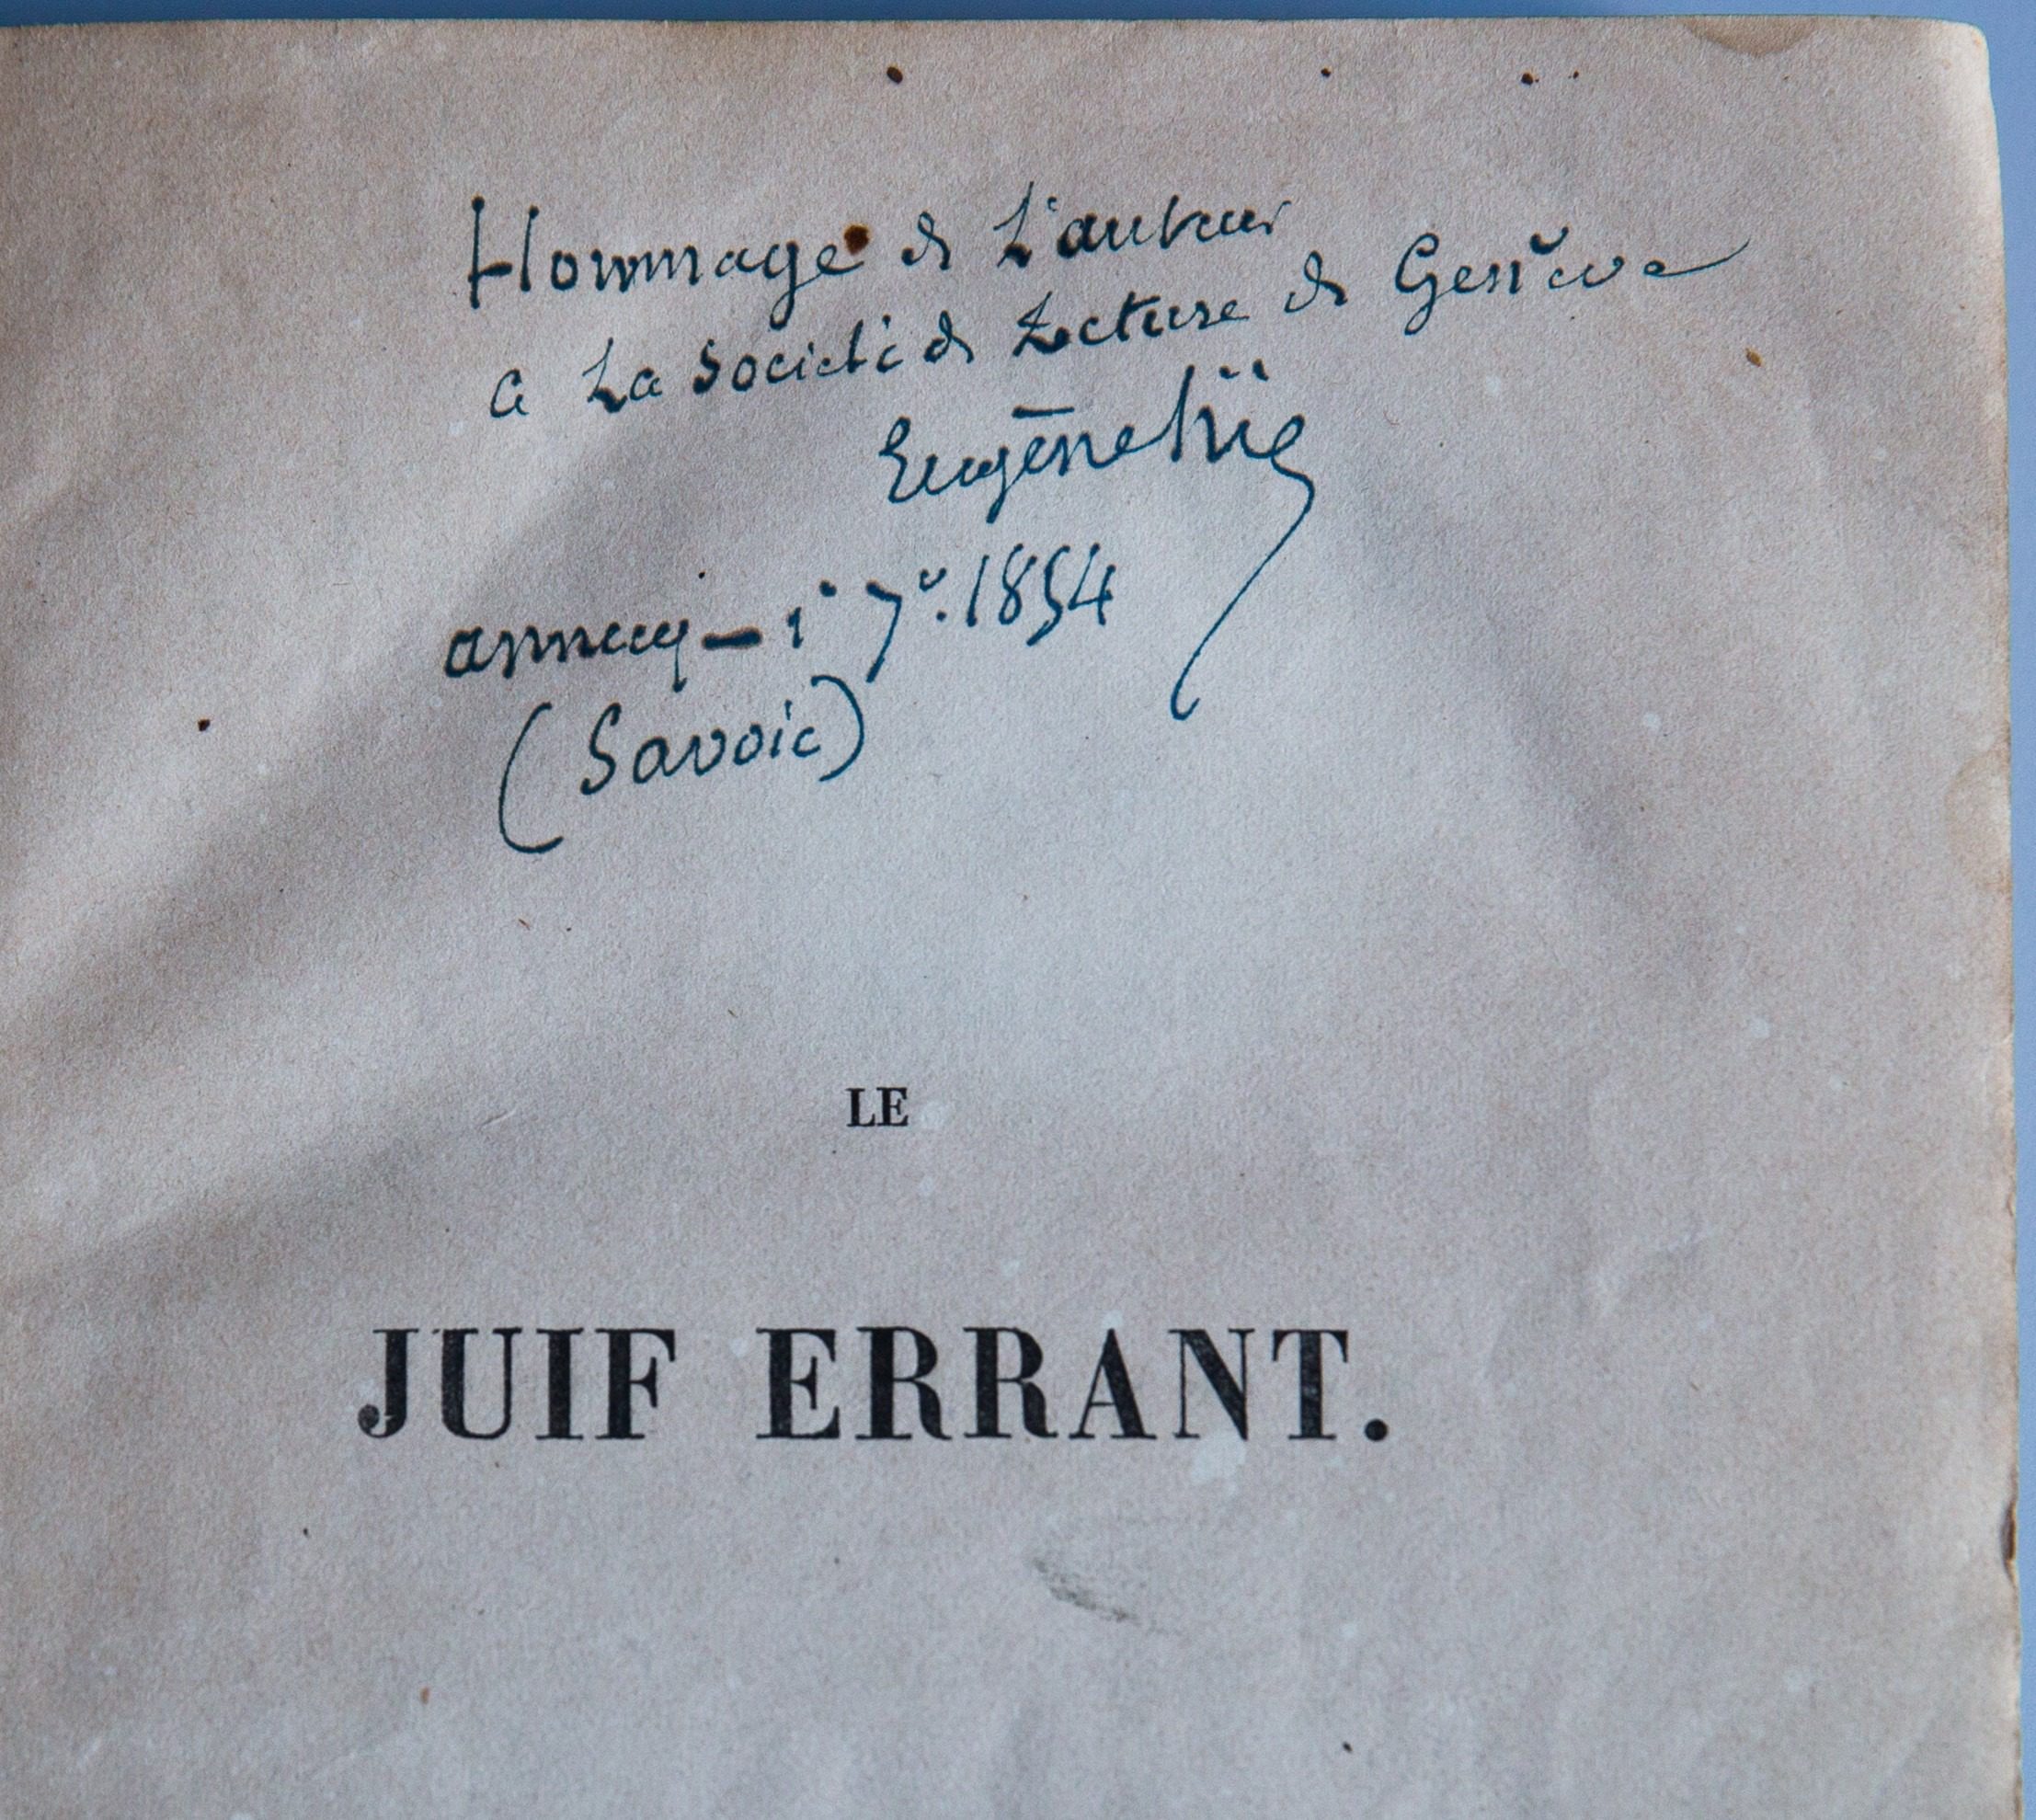 Hommage de L'auteur
a La Société de Lecture de Genève
Eugène Süe
annecy – 1º 7r. 1854
(Savoie)
LE
JUIF ERRANT.